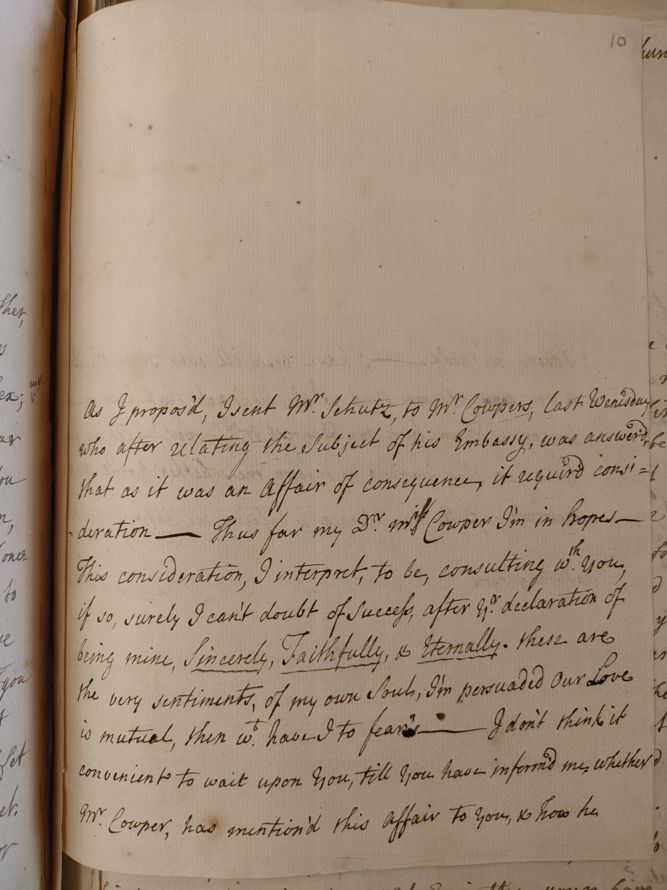 10
As I propos'd, I sent Mr. Schutz, to Mr. Cowpers, last Wensday
who after relating the Subject of his Embassy, was answer'd,
that as it was an Affair of consequence, it requir'd consi=
deration — Thus far my Dr. Miss Cowper I'm in hopes —
This consideration, I interpret, to be, consulting wth. You,
if so, surely I can't doubt of Success, after Yr. declaration of
being mine, Sincerely, Faithfully, & Eternally. these are
the very sentiments, of my own Soul, I'm persuaded Our Love
is mutual, then wt. have I to fear — I don't think it
convenient to wait upon You, till You have inform'd me, whether
Mr. Cowper, has mention'd this Affair to You, & how he